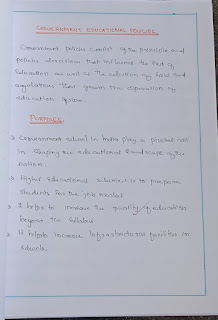 GOVERNMENT EDUCATIONAL POLICIES
Government policies consist of the principle and
policies decisions that influence the field of
Education as well as the collection of laws and
regulations that govern the operation of
education system.
PURPOSES
Government school in India play a pivotal role
in shaping the educational landscape of the
nation.
Higher Educational scheme is to prepare
students for the job market
It helps to increase the quality of education
beyond the syllabus.
It helps increase infrastructure facilities in
schools.